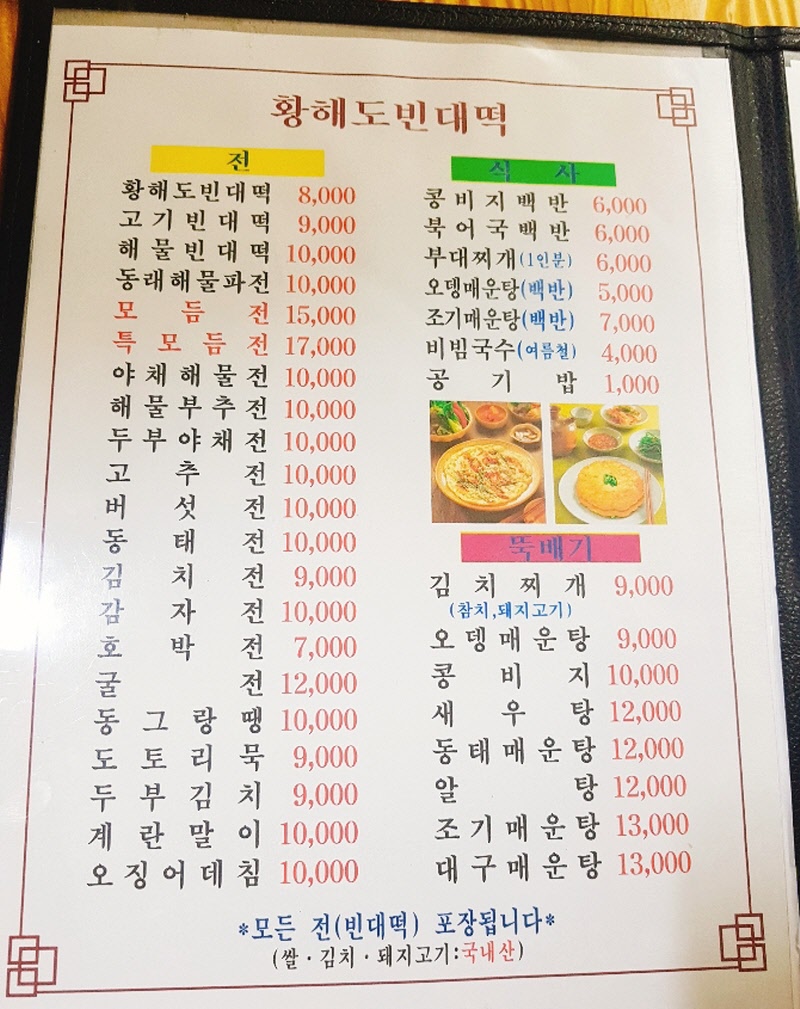 황해도빈대떡
전
황해도빈대떡 8,000
고기빈대떡 9,000
해물빈대떡 10,000
동래해물파전 10,000
모듬전 15,000
특모듬전 17,000
야채해물전 10,000
해물부추전 10,000
두부야채전 10,000
고추전 10,000
버섯전 10,000
동태전 10,000
김치전 9,000
감자전 10,000
호박전 7,000
굴전 12,000
동그랑땡 10,000
도토리묵 9,000
두부김치 9,000
계란말이 10,000
오징어데침 10,000
식사
콩비지백반 6,000
북어국백반 6,000
부대찌개(1인분) 6,000
오뎅매운탕(백반) 5,000
조기매운탕(백반) 7,000
비빔국수(여름철) 4,000
공기밥 1,000
뚝배기
김치찌개 9,000
(참치,돼지고기)
오뎅매운탕 9,000
콩비지 10,000
새우탕 12,000
동태매운탕 12,000
알탕 12,000
조기매운탕 13,000
대구매운탕 13,000
*모든 전(빈대떡) 포장됩니다*
(쌀·김치·돼지고기:국내산)